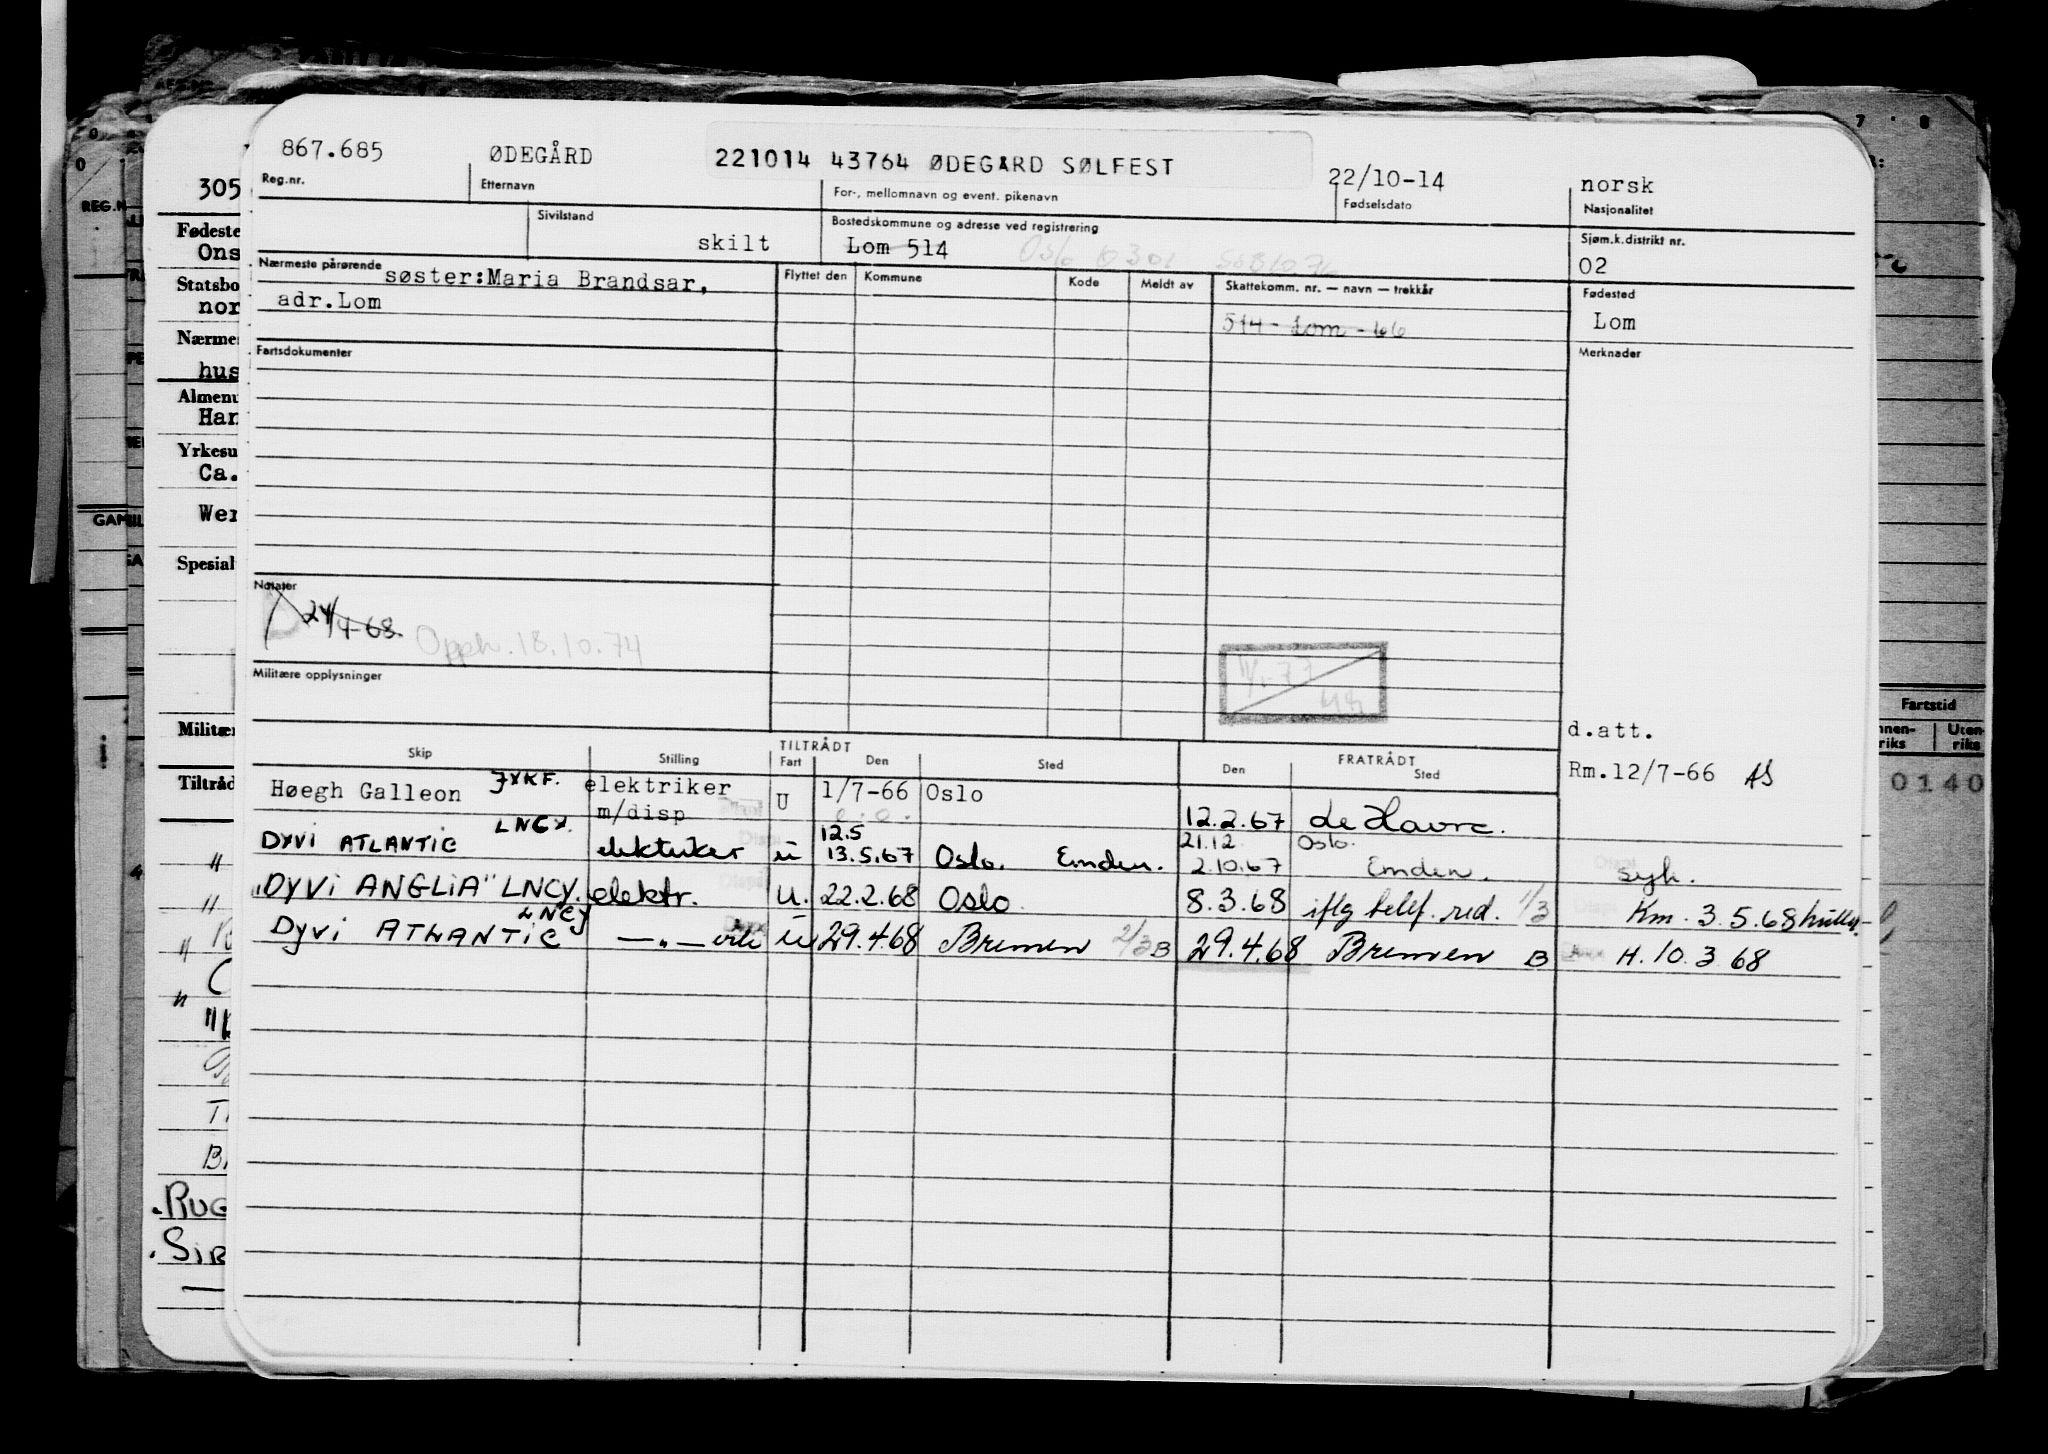 867.685 ØDEGÅRD 221014 43764 ØDEGARD SØLFEST 22/10-14 norsk
Reg.nr. Etternavn For-, mellomnavn og event. pikenavn Fødselsdato Nasjonalitet
Sivilstand Bostedskommune og adresse ved registrering Sjøm.k.distrikt nr.
skilt Lom 514 Oslo 0301 02
Nærmeste pårørende Flyttet den Kommune Kode Meldt av Skattekomm. nr. — navn — trekkår Fødested
søster:Maria Brandsar,
adr.Lom 514 - Lom - 66 Lom
Fartsdokumenter Merknader
Notater
24/4-68. Opph. 18.10.74
Militære opplysninger
d.att.
Skip Stilling TILTRÅDT Fart Den Sted FRATRÅDT Den Sted
Rm.12/7-66 AS
Høegh Galleon JXKF. elektriker m/disp U 1/7-66 Oslo 12.2.67 Le Havre.
DYVI ATLANTIC LNCY. elektriker u 12.5 13.5.67 Oslo. Emden. 21.12. 2.10.67 Oslo. Emden. syk.
"DYVI ANGLIA" LNCY. elektr. U. 22.2.68 Oslo 8.3.68 iflg telef. red. 1/3 Km. 3.5.68
DYVI ATLANTIC LNCY —„— u 29.4.68 Bremen 2/3 B 29.4.68 Bremen B H. 10.3 68
305
Fødeste
Ons
Statsbo
nor
Nærmes
hus
Almenu
Har
Yrkesu
Ca.
Wer
Spesial
Militær
Tiltråd
RUG
SIR
REG.N
GAM
7 8
Fartstid
nnen-
riks
Uten-
riks
0140